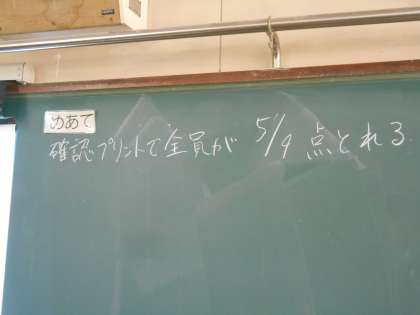 めあて
確認プリントで全員が 5/9 点とれる